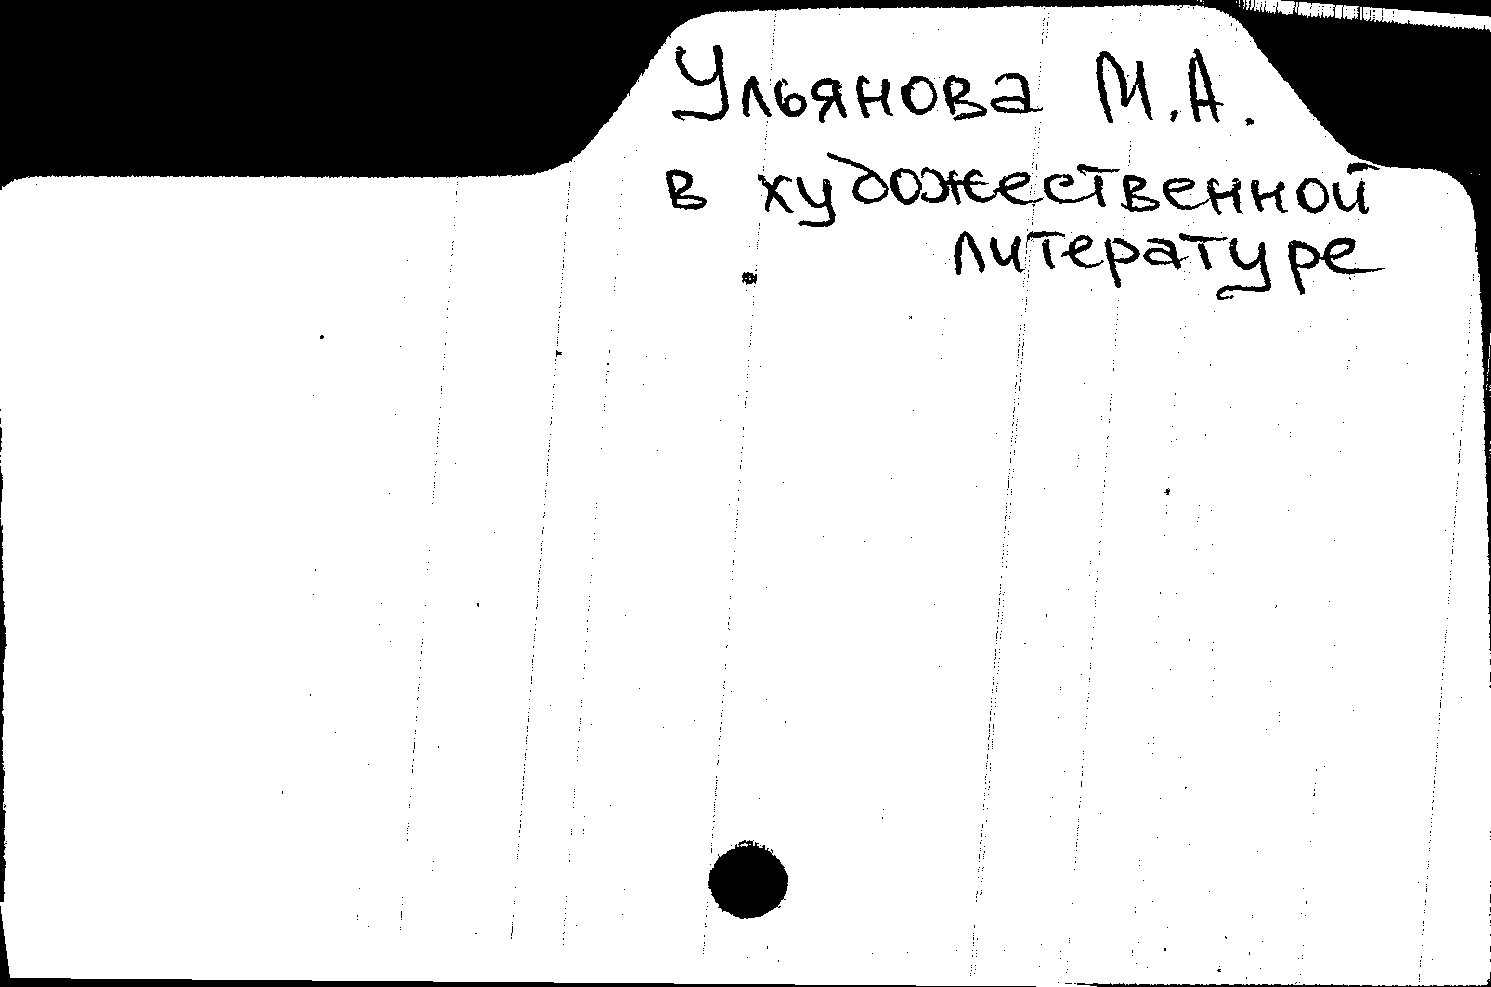 Ульянова М.А.
в художественной
литературе